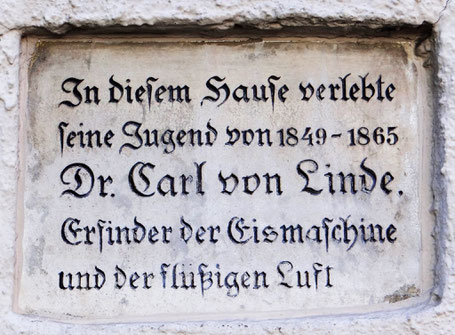 In dieſem Hauſe verlebte
ſeine Jugend von 1849-1865
Dr. Carl von Linde.
Erfinder der Eismaſchine
und der flüßigen Luft